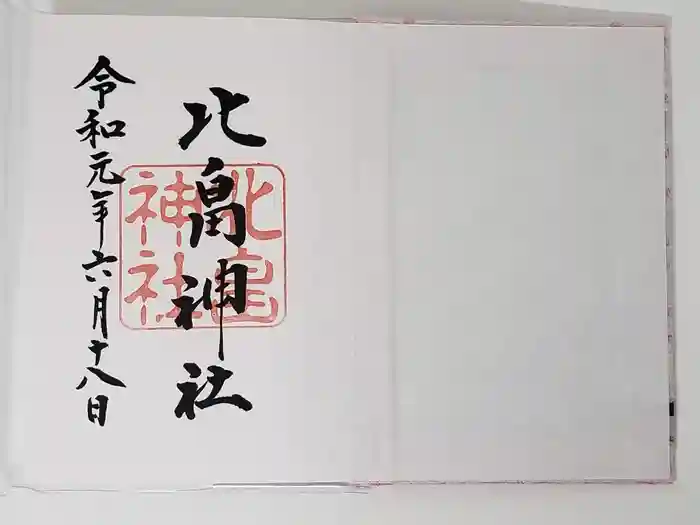 北畠神社
北畠
神社
令和元年六月十八日